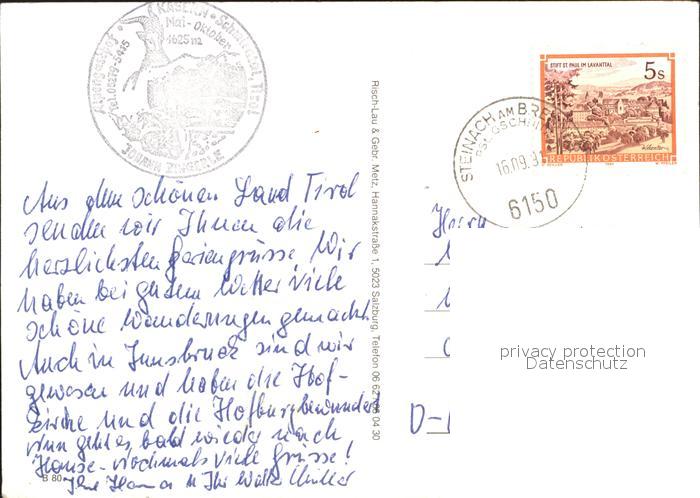 Alpengasthof • KASERN • Schmirntal, Tirol
Mai - Oktober
1625 m
Tel. 05279-5415
JOHANN
STIFT ST. PAUL IM LAVANTTAL
5 S
REPUBLIK ÖSTERREICH
STEINACH AM BRE
16.09.9
6150
Risch-Lau & Gebr. Metz, Hannakstraße 1, 5023 Salzburg, Telefon 06 62/
04 30
Aus dem schönen Land Tirol
senden wir Ihnen die
herzlichsten Feriengrüsse. Wir
haben bei gutem Wetter viele
schöne Wanderungen gemacht.
Auch in Innsbruck sind wir
gewesen und haben die Hof-
kirche und die Hofburg bewundert
nun geht es bald wieder nach
Hause - nochmals viele Grüsse!
Ihre Hanna u Ihr Walter Müller
B 80
Herrn
D-
privacy protection
Datenschutz